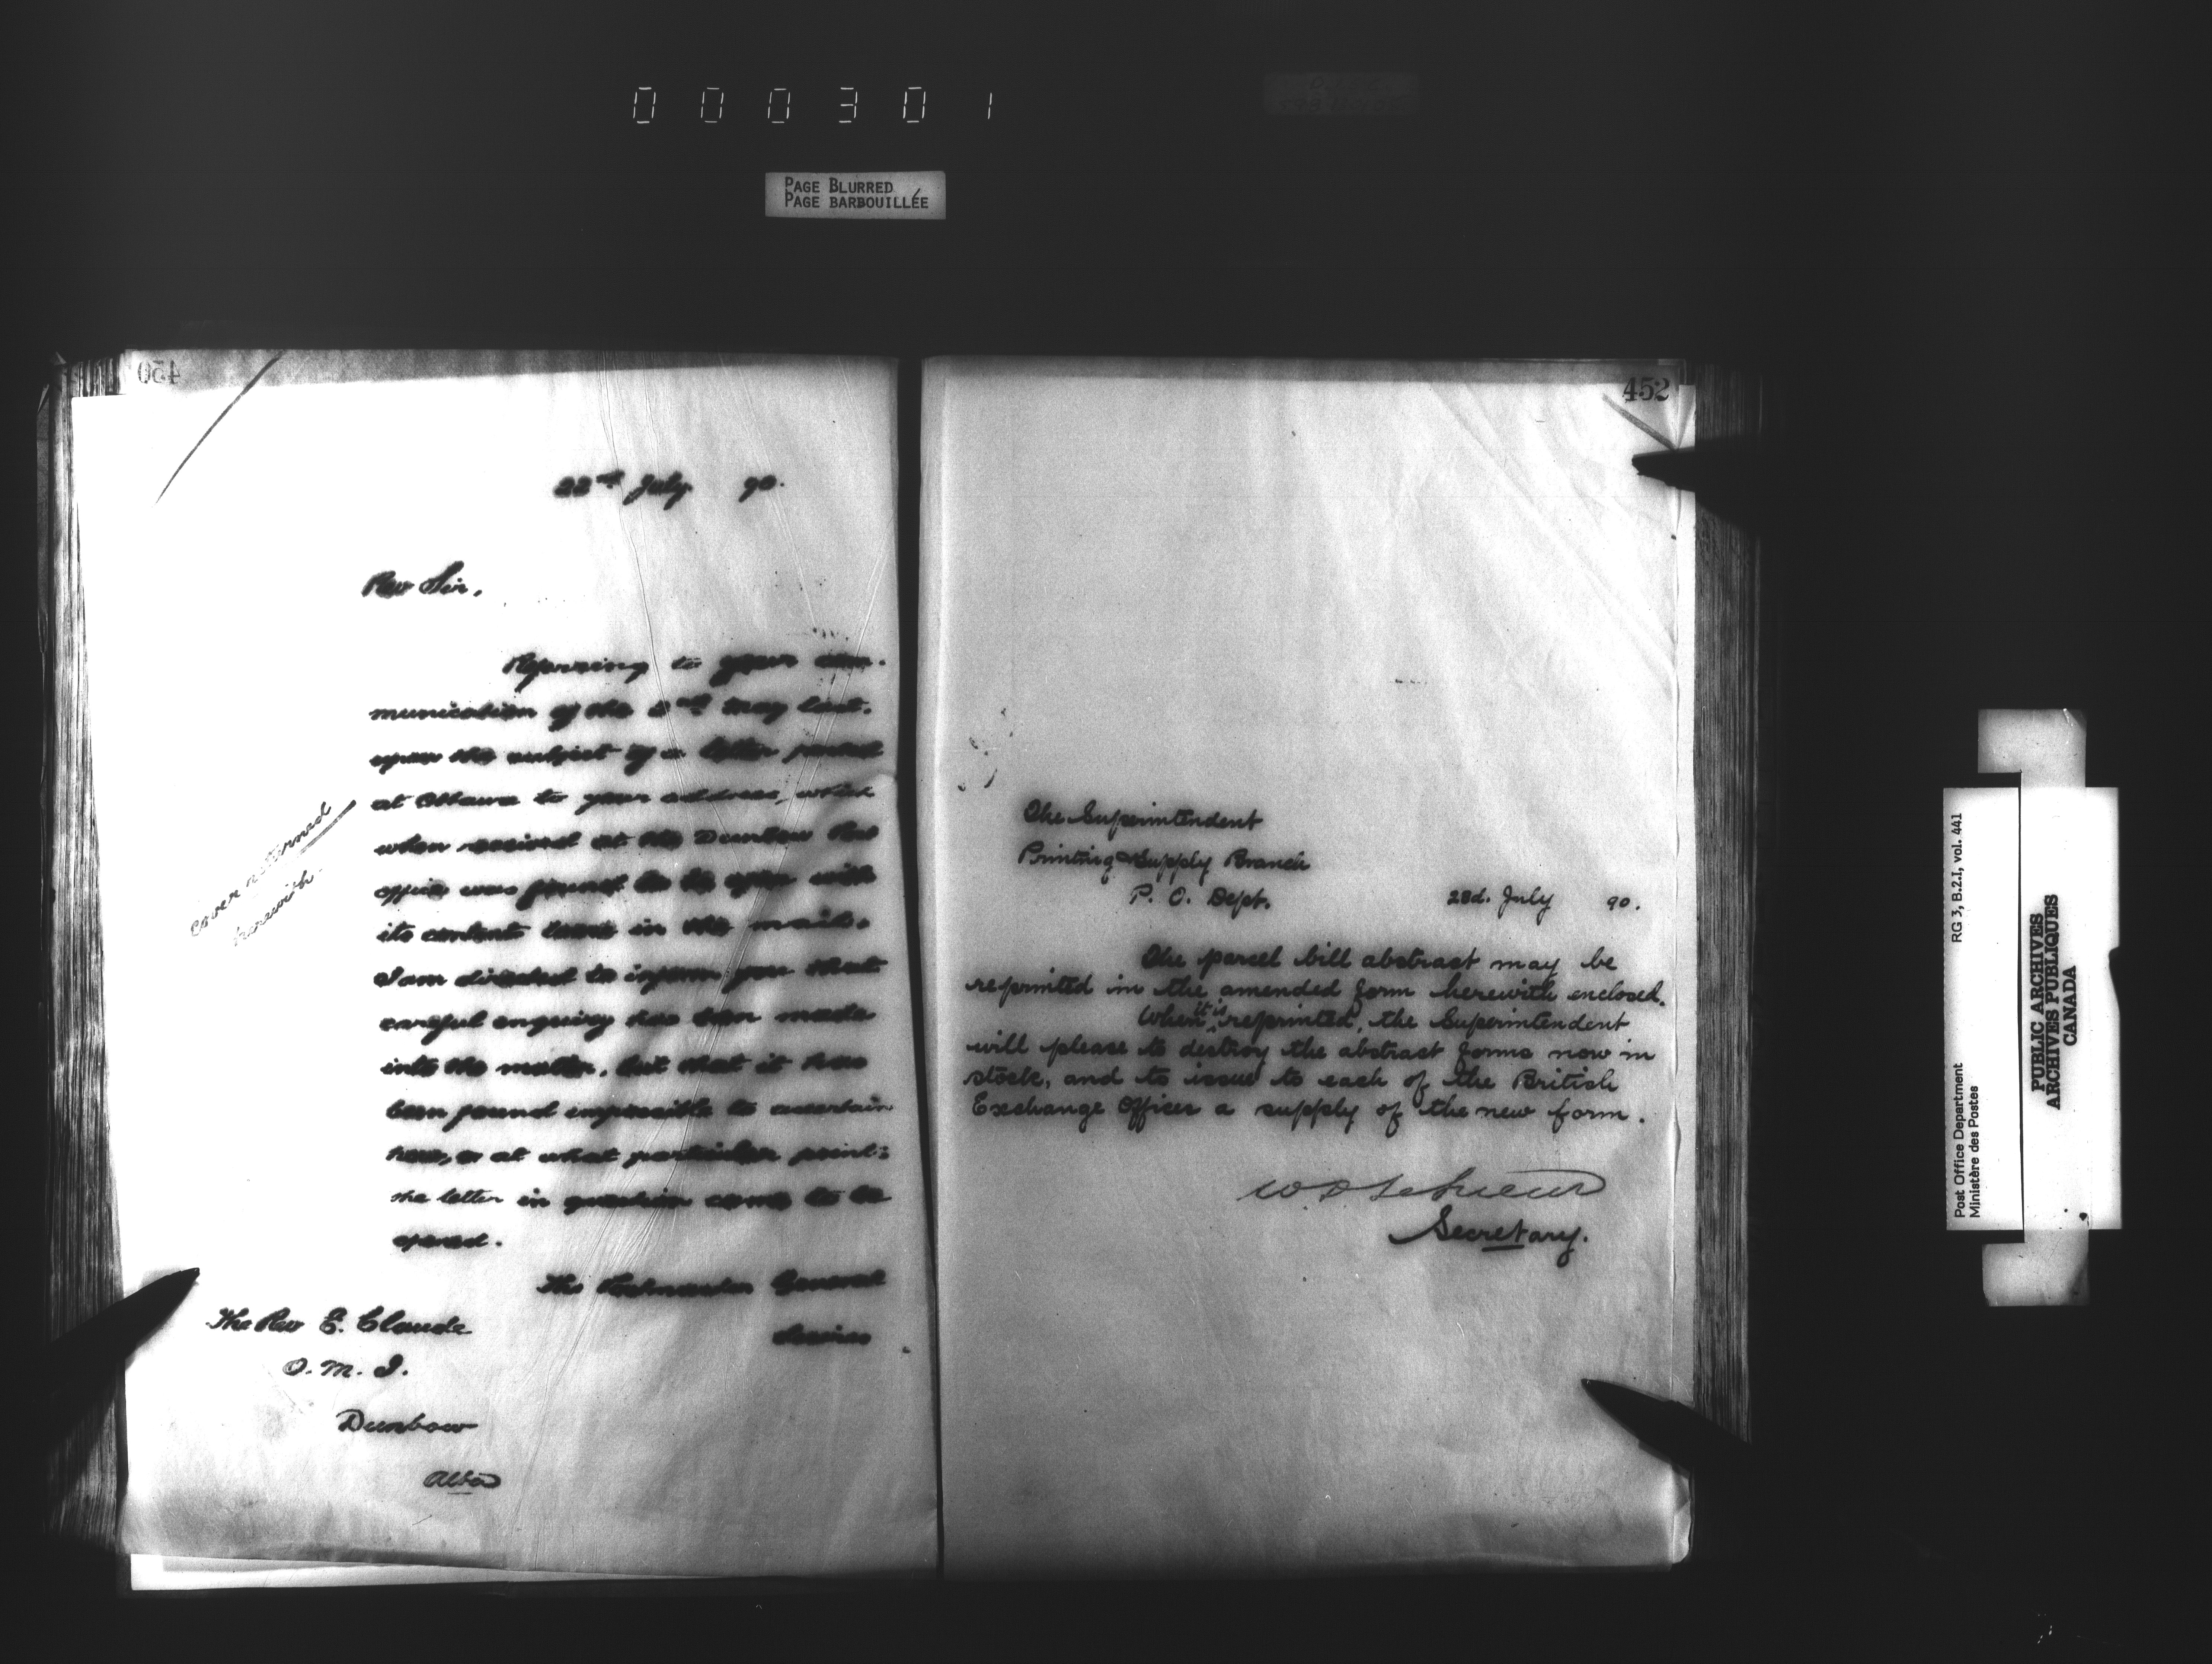 000301
PAGE BLURRED
PAGE BARBOUILLÉE
450
22nd July 90.
Rev Sir,
Referring to your com-
munication of the May last,
upon the subject of a letter posted
at Ottawa to your address, which
when received at the Dunbow Post
office was found to be open with
its content loose in the mail.
I am directed to inform you that
careful enquiry has been made
into the matter, but that it has
been found impossible to ascertain
how, or at what particular point
the letter in question came to be
opened.
The Postmaster General
desires
Cover returned
herewith.
The Rev E. Claude
O. M. I.
Dunbow
Alba
452
The Superintendent
Printing & Supply Branch
P. O. Dept. 23d. July 90.
The parcel bill abstract may be
reprinted in the amended form herewith enclosed.
When it is reprinted, the Superintendent
will please to destroy the abstract forms now in
stock, and to issue to each of the British
Exchange Offices a supply of the new form.
W D LeSueur
Secretary.
Post Office Department
Ministère des Postes
RG 3, B.2.I, vol. 441
PUBLIC ARCHIVES
ARCHIVES PUBLIQUES
CANADA